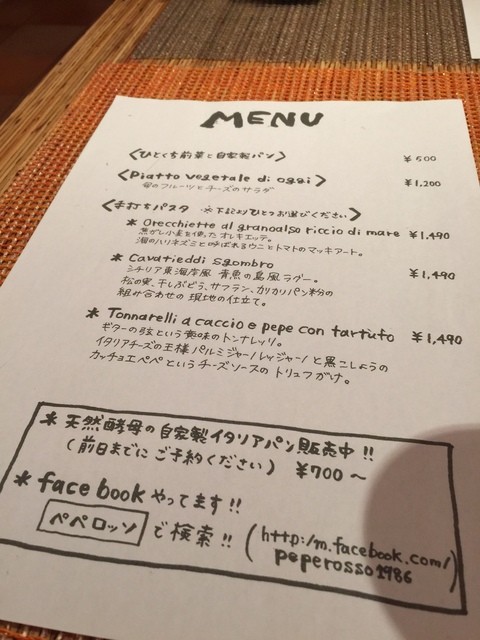 MENU
〈ひとくち前菜と自家製パン〉 ¥500
〈Piatto vegetale di oggi〉 ¥1,200
旬のフルーツとチーズのサラダ
〈手打ちパスタ ※下記よりひとつお選びください〉
* Orecchiette al granoalso riccio di mare ¥1,490
焦がし小麦を使ったオレキエッテ。
海のハリネズミと呼ばれるウニとトマトのマッキアート。
* Cavatieddi Sgombro ¥1,490
シチリア東海岸風 青魚の島風ラグー。
松の実、干しぶどう、サフラン、カリカリパン粉の
組み合わせの現地の仕立て。
* Tonnarelli a caccio e pepe con tartufo ¥1,490
ギターの弦という意味のトンナレッリ。
イタリアチーズの王様パルミジャーノレッジャーノと黒こしょうの
カッチョエペペというチーズソースのトリュフがけ。
* 天然酵母の自家製イタリアパン販売中!!
(前日までにご予約ください) ¥700~
* facebookやってます!!
ペペロッソ で検索!! (http:/m.facebook.com/
peperosso1986